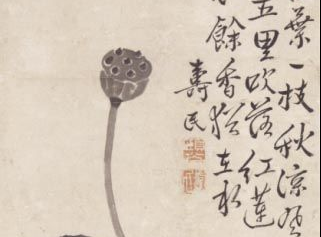 葉一枝秋涼
五里吹落紅蓮
餘香猶在
壽民